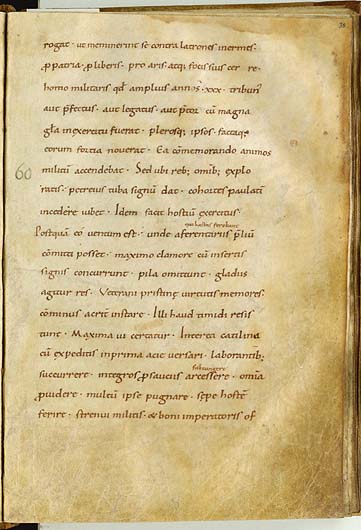 38
rogat · ut meminerint se contra latrones inermes ·
ꝓ patria · ꝓ liberis · pro aris atq; focis suis cer re ·
homo militaris qđ amplius annos · xxx · tribunꝰ
aut p̄fectus · aut legatus · aut p̄tor cū magna
gła in exercitu fuerat · plerosq; ipsos · factaq;
eorum fortia noverat · Ea cōmemorando animos
60 militū accendebat · Sed ubi reb; omib; explo
ratis · petreius tuba signū dat · cohortes paulatī
incedere iubet · Idem facit hostiū exercitus ·
qui hastis ferebant
Postquā eo ventum est · unde a ferentariis p̄liū
cōmitti posset · maximo clamore cū infestis
signis concurrunt · pila omittunt · gladiis
agitur res · Veterani pristinę virtutis memores
cōminus acrit instare · Illi haud timidi resis
tunt · Maxima vi certatur · Interea catilina
cū expeditis in prima acie versari · laborantib;
succurrere · integros ꝓ sauciis arcessere · omīa
ꝓvidere · multū ipse pugnare · sępe hostē
ferire · strenui militis · & boni imperatoris of